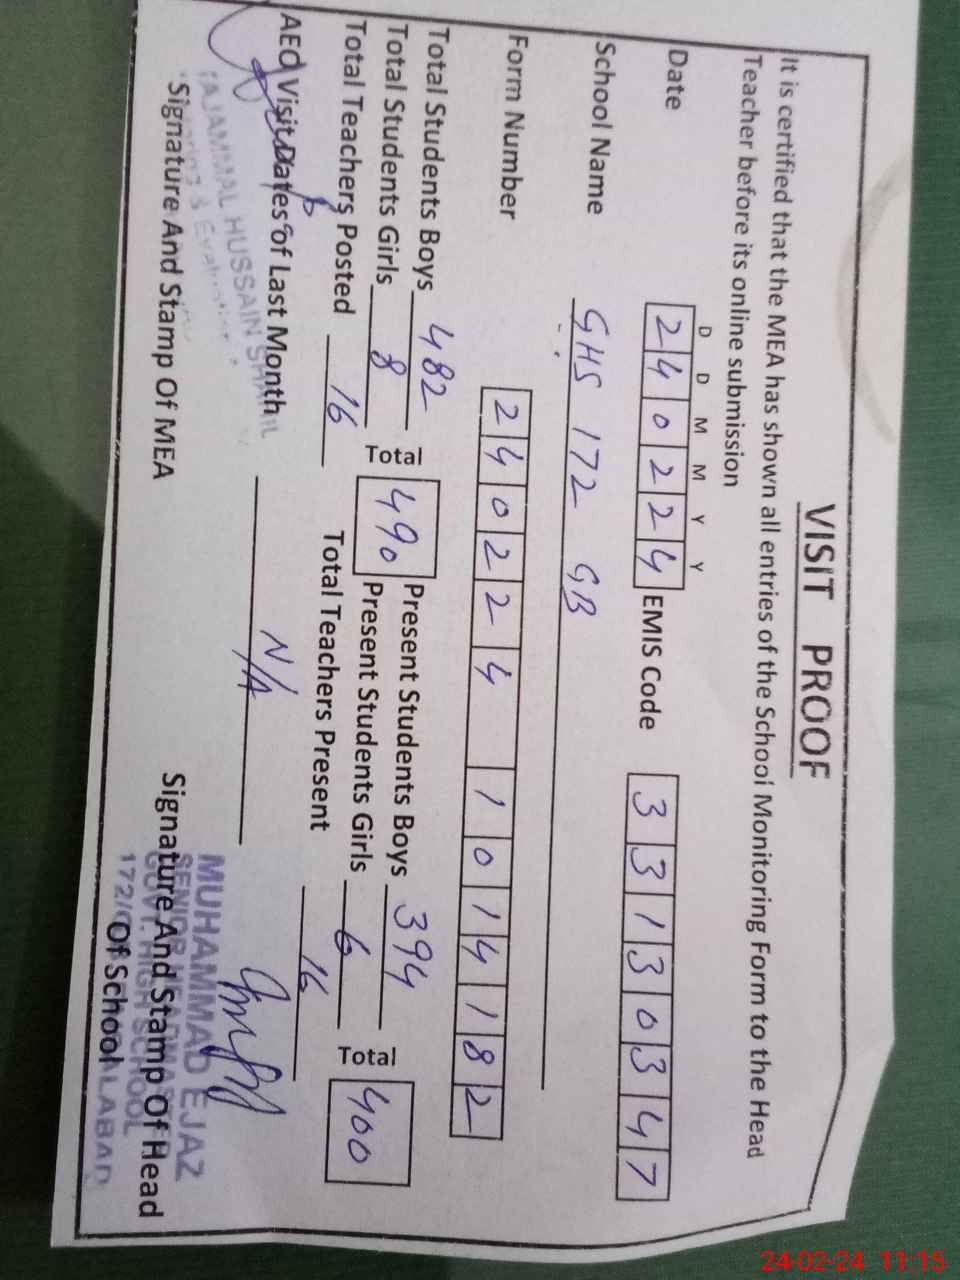 VISIT PROOF
It is certified that the MEA has shown all entries of the School Monitoring Form to the Head
Teacher before its online submission
D D M M Y Y
Date 2 4 0 2 2 4 EMIS Code 3 3 1 3 0 3 4 7
School Name GHS 172 GB
Form Number 2 4 0 2 2 4 1 0 1 4 1 8 2
Total Students Boys 482 Total 490 Present Students Boys 394 Total 400
Total Students Girls 8 Present Students Girls 6
Total Teachers Posted 16 Total Teachers Present 16
AEO Visit Dates of Last Month N/A
TAJAMMAL HUSSAIN
Signature And Stamp Of MEA
MUHAMMAD EJAZ
SENIOR HEADMASTER
GOVT. HIGH SCHOOL
172/
Signature And Stamp Of Head
Of School
24-02-24 11:15